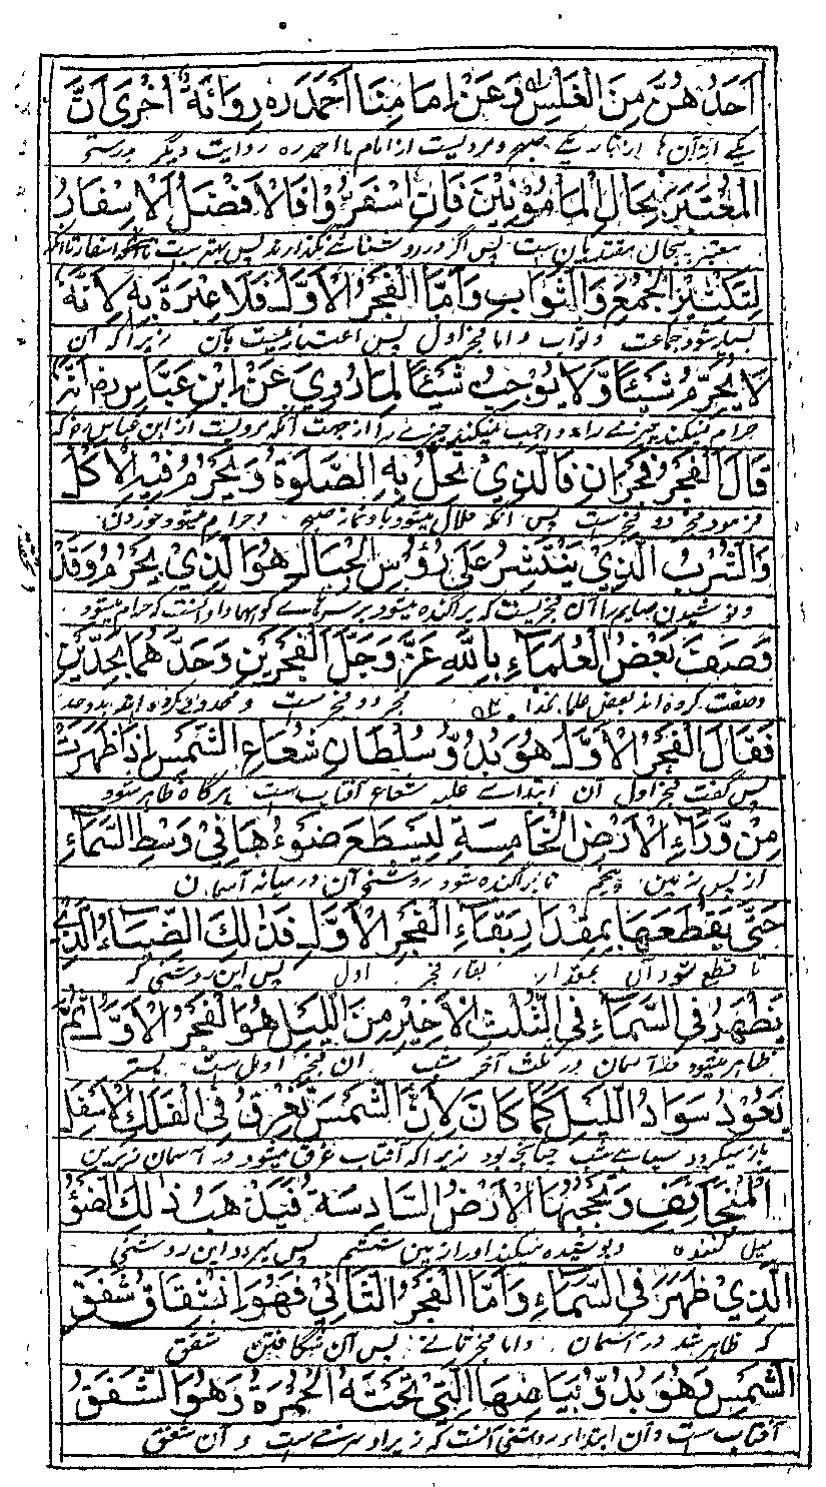 اَحَدُهُنَّ مِنَ الْغَلَسِ وَعَنْ اِمَامِنَا اَحْمَدَ رہ رِوَايَةٌ اُخْرٰى اَنَّ
یکے از آن ہا از تاریکے صبح و مرویست از امام ما احمد رہ روایت دیگر بدرستے
الْمُعْتَبَرَ بِحَالِ الْمَامُوْمِيْنَ فَاِنْ اَسْفَرُوْا فَالْاَفْضَلُ الْاِسْفَارُ
معتبر بحال مقتدیان ست پس اگر در روشنائے بگذارند پس بہتر ست اسفار تا آنکہ
لِتَكْثِيْرِ الْجَمْعِ وَالثَّوَابِ وَاَمَّا الْفَجْرُ الْاَوَّلُ فَلَا عِبْرَةَ بِهٖ لِاَنَّهٗ
بسیار شود جماعت و ثواب و اما فجر اول پس اعتبار نیست بآن زیرا کہ آن
لَا يُحَرِّمُ شَيْئًا وَّلَا يُوْجِبُ شَيْئًا لِمَا رُوِيَ عَنْ اِبْنِ عَبَّاسٍ رض اَنَّهٗ
حرام نمیکند چیزے را و واجب نمیکند چیزے را از جہت آنکہ مرویست از ابن عباس رض کہ
قَالَ الْفَجْرُ فَجْرَانِ فَالَّذِيْ تَحِلُّ بِهِ الصَّلٰوةُ وَيَحْرُمُ فِيْهِ الْاَكْلُ
فرمود فجر دو فجر ست پس آنکہ حلال میشود باو نماز صبح و حرام میشود خوردن
وَالشُّرْبُ الَّذِيْ يَنْتَشِرُ عَلٰى رُؤُسِ الْجِبَالِ هُوَ الَّذِيْ يُحَرِّمُ وَقَدْ
و نوشیدن صایم را آن فجریست کہ پراکندہ میشود بر سرہائے کوہہا و آنست کہ حرام میشود
وَصَفَ بَعْضُ الْعُلَمَاءِ بِاللهِ عَزَّ وَجَلَّ الْفَجْرَيْنِ وَحَدَّهُمَا بِحَدَّيْنِ
وصفت کردہ اند بعض علما بخدا فجر دو فجر ست و محدود کردہ اند بدو حد
فَقَالَ الْفَجْرُ الْاَوَّلُ هُوَ بُدُوُّ سُلْطَانِ شُعَاعِ الشَّمْسِ اِذَا ظَهَرَتْ
پس گفت فجر اول آن ابتدائے غلبہ شعاع آفتاب ست ہرگاہ ظاہر شود
مِنْ وَّرَاءِ الْاَرْضِ الْخَامِسَةِ لِيَسْطَعَ ضَوْءُهَا فِيْ وَسْطِ السَّمَاءِ
از پس زمین پنجم تا پراکندہ شود روشنی آن در میانہ آسمان
حَتّٰى يَقْطَعَهَا بِمِقْدَارِ بَقَاءِ الْفَجْرِ الْاَوَّلِ فَذٰلِكَ الضِّيَاءُ الَّذِيْ
تا قطع شود آن بمقدار بقاء فجر اول پس این روشنی کہ
يَظْهَرُ فِي السَّمَاءِ فِي الثُّلُثِ الْاَخِيْرِ مِنَ اللَّيْلِ هُوَ الْفَجْرُ الْاَوَّلُ ثُمَّ
ظاہر میشود در آسمان در ثلث آخر شب آن فجر اول ست پستر
يَعُوْدُ سَوَادُ اللَّيْلِ كَمَا كَانَ لِاَنَّ الشَّمْسَ تَغْرُقُ فِي الْفَلَكِ الْاَسْفَلِ
باز میگردد سیاہے شب چنانچہ بود زیرا کہ آفتاب غرق میشود در آسمان زیرین
الْمُنْحَانِفِ وَيَحْجُبُهَا الْاَرْضُ السَّادِسَةُ فَيَذْهَبُ ذٰلِكَ الضَّوْءُ
میل کنندہ و پوشیدہ میکند او را زمین ششم پس میرود این روشنی
الَّذِيْ ظَهَرَ فِي السَّمَاءِ وَاَمَّا الْفَجْرُ الثَّانِيْ فَهُوَ اِنْشِقَاقُ شَفَقِ
کہ ظاہر شد در آسمان و اما فجر ثانے پس آن شگافتن شفق
الشَّمْسِ وَهُوَ بُدُوُّ بَيَاضِهَا الَّتِيْ تَحْتَهُ الْحُمْرَةُ وَهُوَ الشَّفَقُ
آفتاب ست و آن ابتداء روشنی آنست کہ زیر او سرخے ست و آن شفق